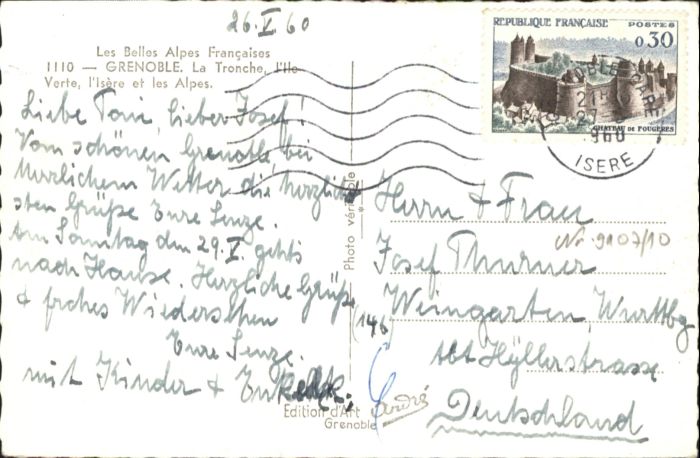 26.V.60
Les Belles Alpes Françaises
1110 — GRENOBLE. La Tronche, l'Ile
Verte, l'Isère et les Alpes.
Liebe Toni, lieber Josef!
Vom schönen Grenoble bei
herrlichem Wetter die herzlich
sten Grüße Eure Senze.
Am Samstag den 29.V. gehts
nach Hause. Herzliche Grüße
& frohes Wiedersehen
Eure Senze.
mit Kinder &
Photo véritable
Edition d'Art André
Grenoble
REPUBLIQUE FRANÇAISE
POSTES
0,30
CHATEAU DE FOUGÈRES
GARE
ISERE
Herrn & Frau
Nr. 9107/10
Josef Thurner
(146 Weingarten, Wurttbg
Abt Hyllerstrasse
Deutschland